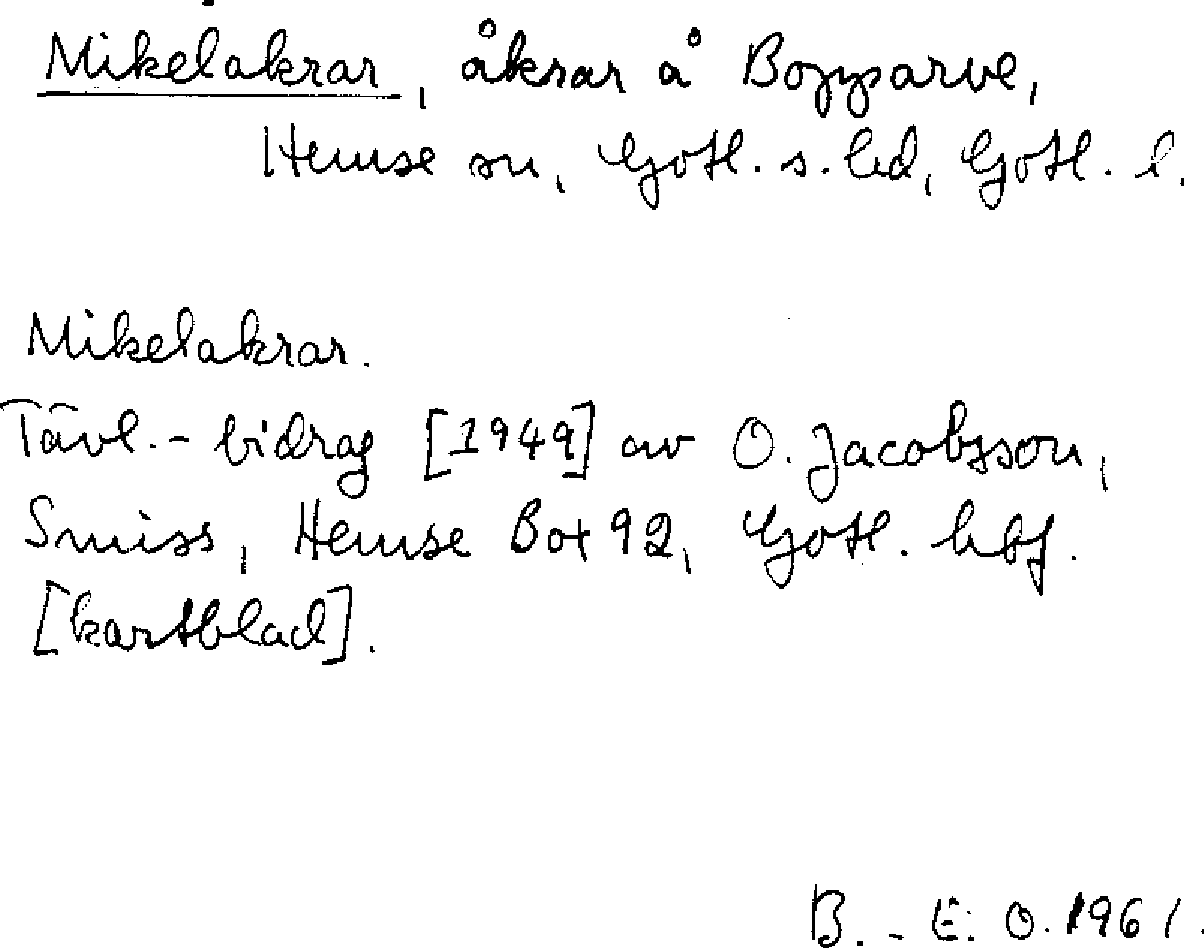 Mikelakrar, åkrar å Bopparve,
Hemse sn, Gotl. s. hd, Gotl. l.
Mikelakrar.
Tävl.-bidrag [1949] av O. Jacobsson,
Smiss, Hemse Box 92, Gotl. hbf.
[kartblad].
B.-E. O. 1961.